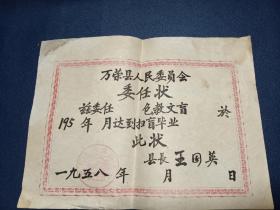 万荣县人民委员会
委任状
兹委任 包教文盲 於
195 年 月达到扫盲毕业
此状
县長 王国英
一九五八年 月 日